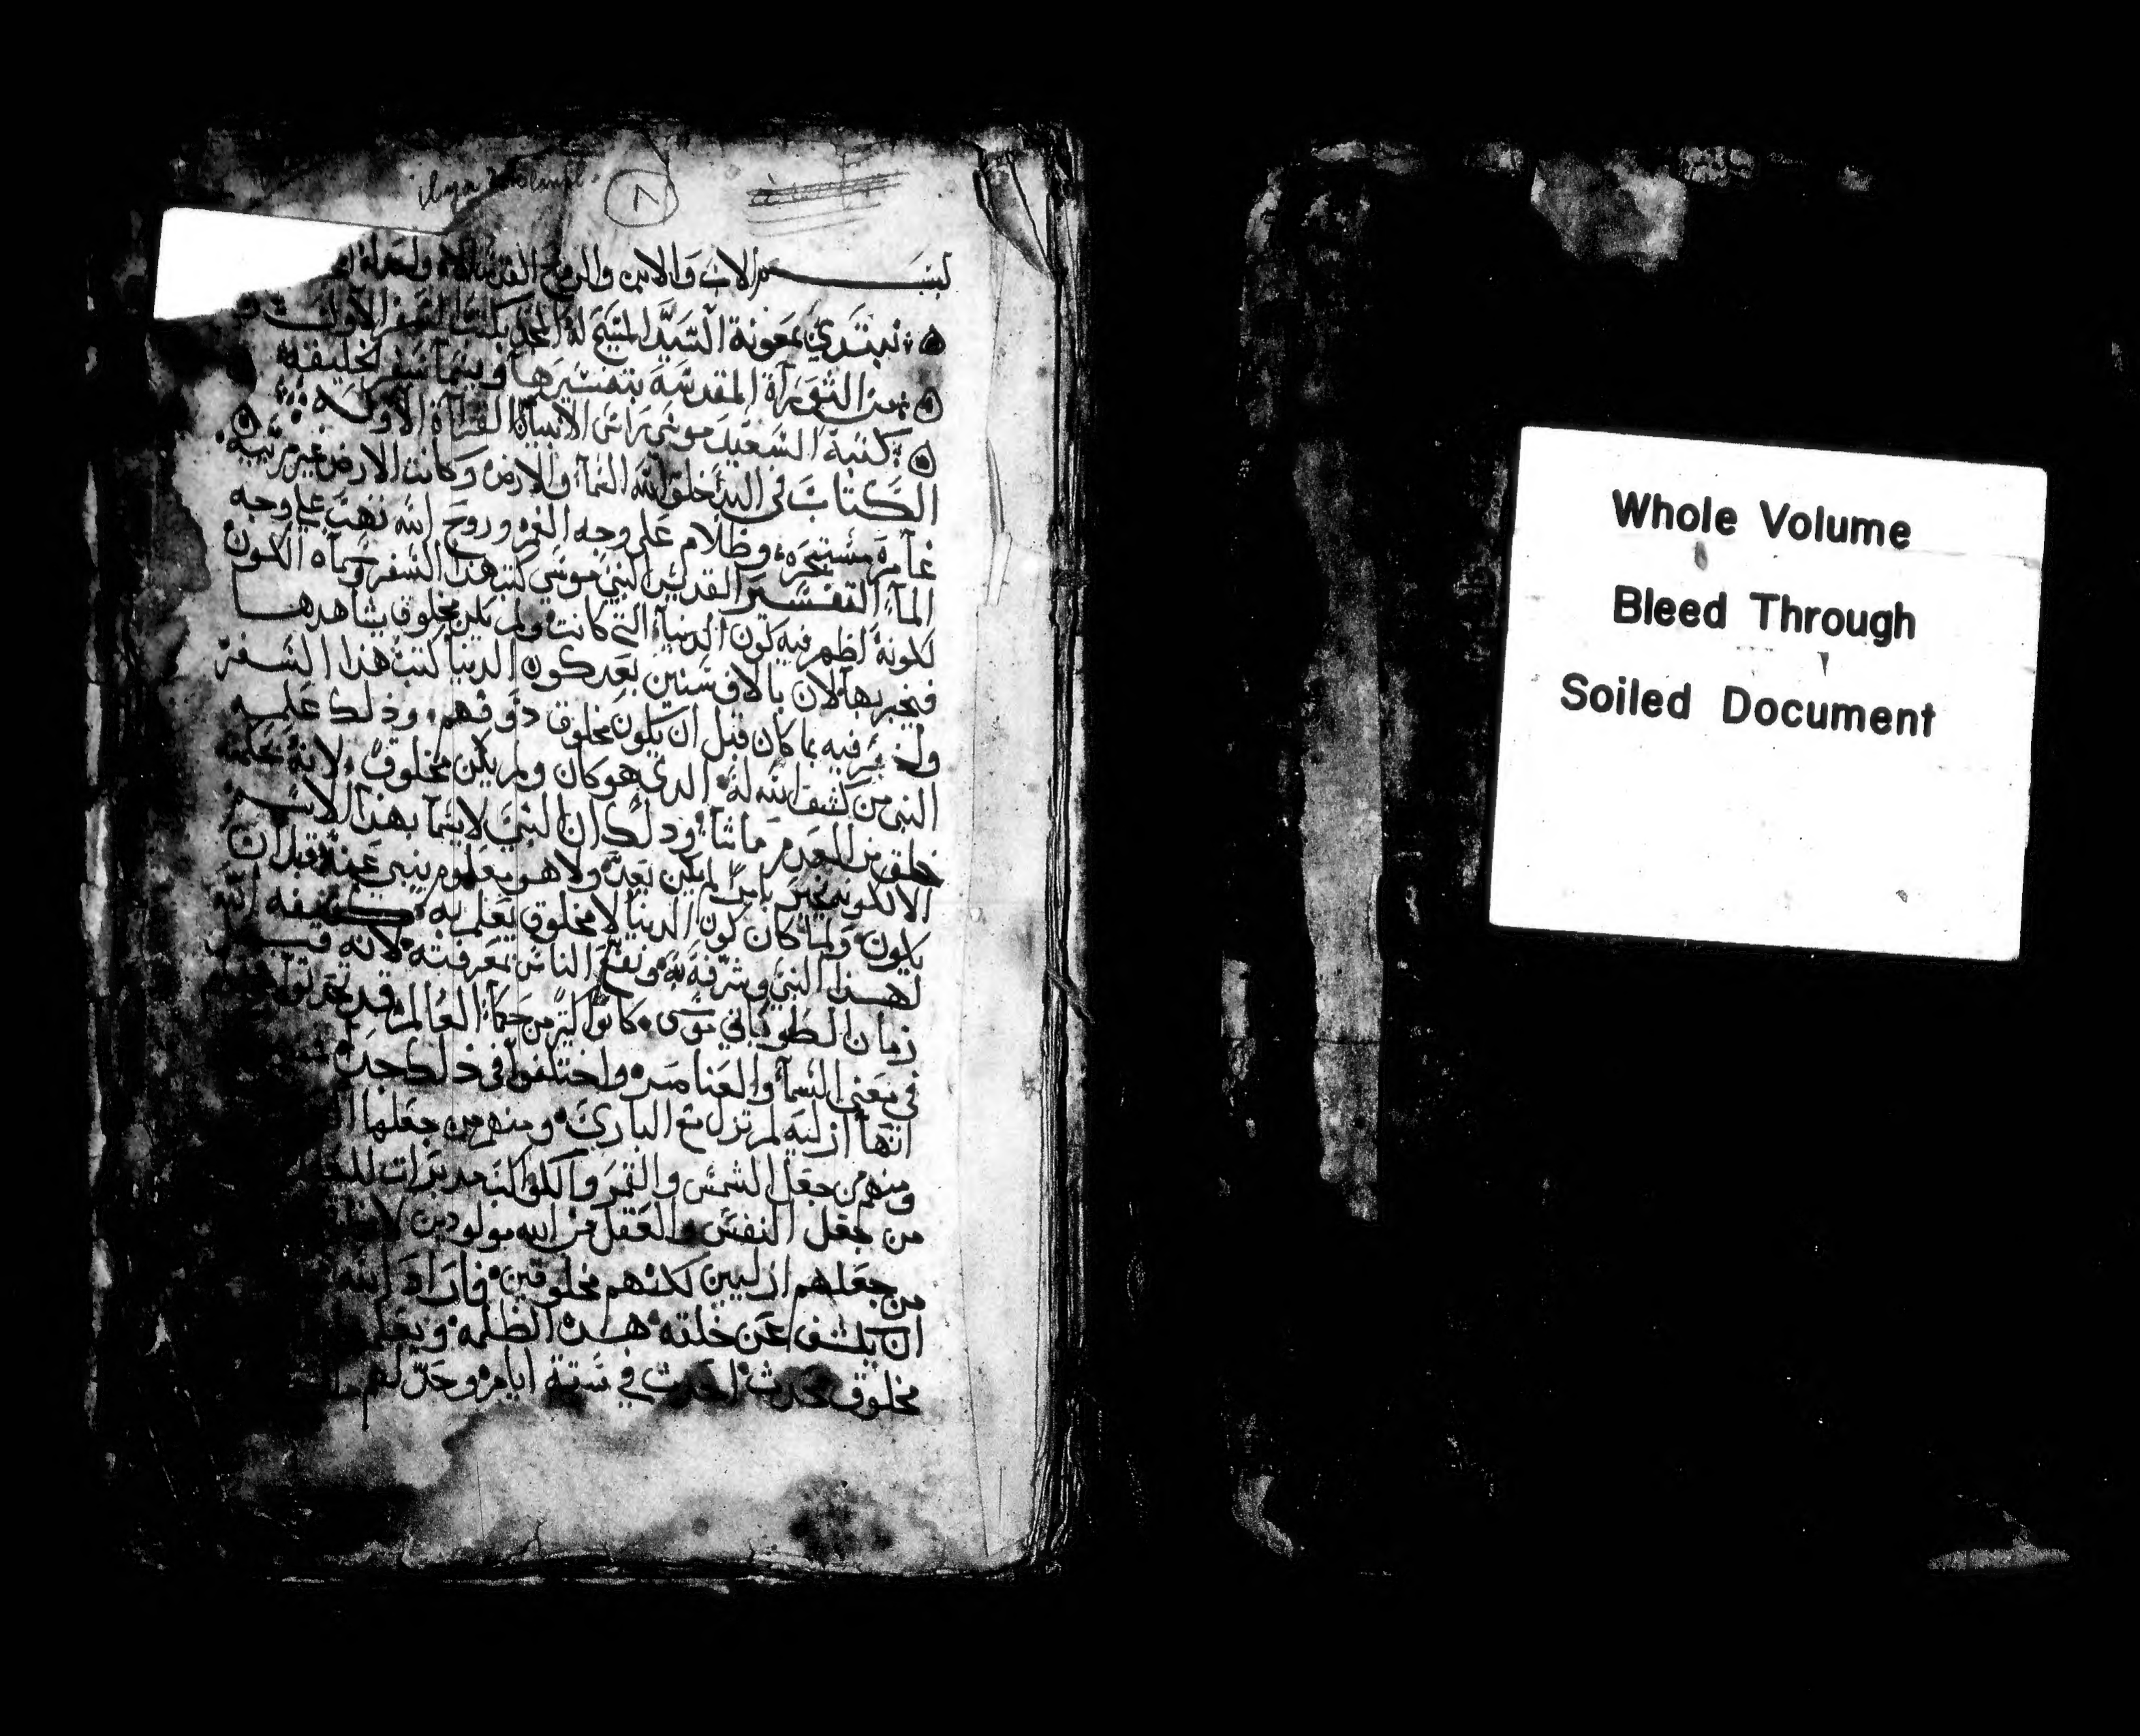 ٨
بسم الاب والابن والروح القدس الاله
نبتدي بمعونة السيد المسيح له المجد بكتب السفر الاول
من التوراة المقدسة بتفسيرها ويتما سفر الخليقه
كتبة السعيد موسي راس الانبيآ القرآة الاوله
الكتاب في البدئ خلق الله السمآ والارض وكانت الارض غير مرتيه
غآمره مستبحره وظلام علي وجه الغمر وروح الله تهب علي وجه
المآ التفسير القديس النبي موسي كتب هذا السفر وسماه الكون
لكونه اظهر فيه كون الدنيا التي كانت ولم يكن مخلوق يشاهدها
فيخبر بها لان بالاف سنين بعد كون الدنيا كتب هذا السفر
وليخبر فيه بما كان قبل ان يكون مخلوق وذلك علمه
النبي من كشف الله له الذي هو كان ولم يكن مخلوق لانه
خلق من العدم ما شآ وذلك ان النبي لا يتما بهذا الاسم
الا لكونه يخبر بامر لم يكن بعد ولا هو معلوم ينبي عنه قبل ان
يكون ولما كان كون الدنيا لا مخلوق يعلم به كشفه الله
لهذا النبي وشرفه به ونفع الناس بمعرفته لانه
زمان الطوباني موسي كانوا كثير من حكمآ العالم قد
في معني السمآ والعناصر واختلفوا في ذلك جدا
انها ازليه لم تزل مع الباري ومنهم من جعلها
ومنهم من جعل الشمس والقمر والكواكب مدبرات
من جعل النفس والعقل من الله مولودين
من جعلهم ازليين لكنهم مخلوقين فاراد الله
ان يكشف عن خلقه هذه الظلمه
مخلوق محدث احدث في ستة ايام
Whole Volume
Bleed Through
Soiled Document